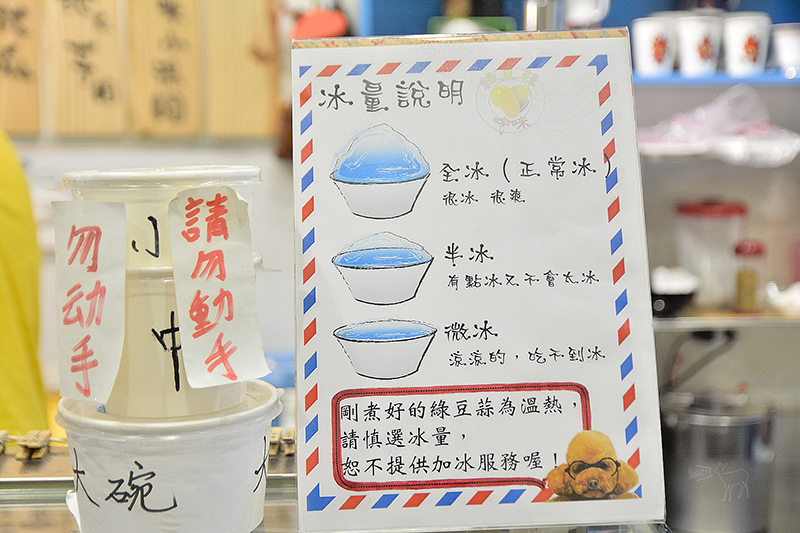 冰量說明
全冰（正常冰）
很冰 很爽
半冰
有點冰又不會太冰
微冰
涼涼的，吃不到冰
剛煮好的綠豆蒜為溫熱，
請慎選冰量，
恕不提供加冰服務喔！
請勿動手
勿动手
小
中
大碗